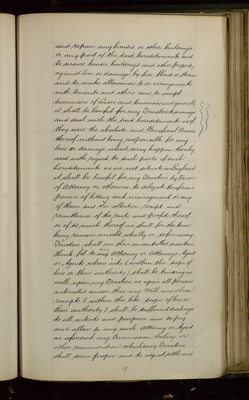 and repair any houses or other buildings
on any part of the said hereditaments and
to insure houses buildings and other property
against loss or damage by fire flood or storm
and to make allowances to or arrangements
with tenants and others and to accept
surrenders of leases and tenancies and generally
it shall be lawful for my Trustees to manage
and deal with the said hereditaments as if
they were the absolute and Beneficial Owners
thereof without being responsible for any
loss or damage which may happen thereby
and with regard to such parts of such
hereditaments as are not situate in England
it shall be lawful for my Trustees by Power
of Attorney or otherwise to delegate the
powers of letting and management to any
of them and the collection receipt and
remittance of the rents and profits thereof
or of so much thereof as shall for the time
being remain unsold wholly or
Trustees shall in their uncontrolled discretion
think fit to any Attorney or Attornies Agent
or Agents whose acts (within the scope of
his or their authority) shall be binding as
well upon my Trustees as upon all persons
interested under this my Will and whose
receipts (within the like scope of his or
their authority) shall be sufficient discharges
to all intents and purposes and to pay
and allow to any such Attorney or Agent
as aforesaid any Commission Salary or
other remuneration which my Trustees
shall deem proper and to sign settle and